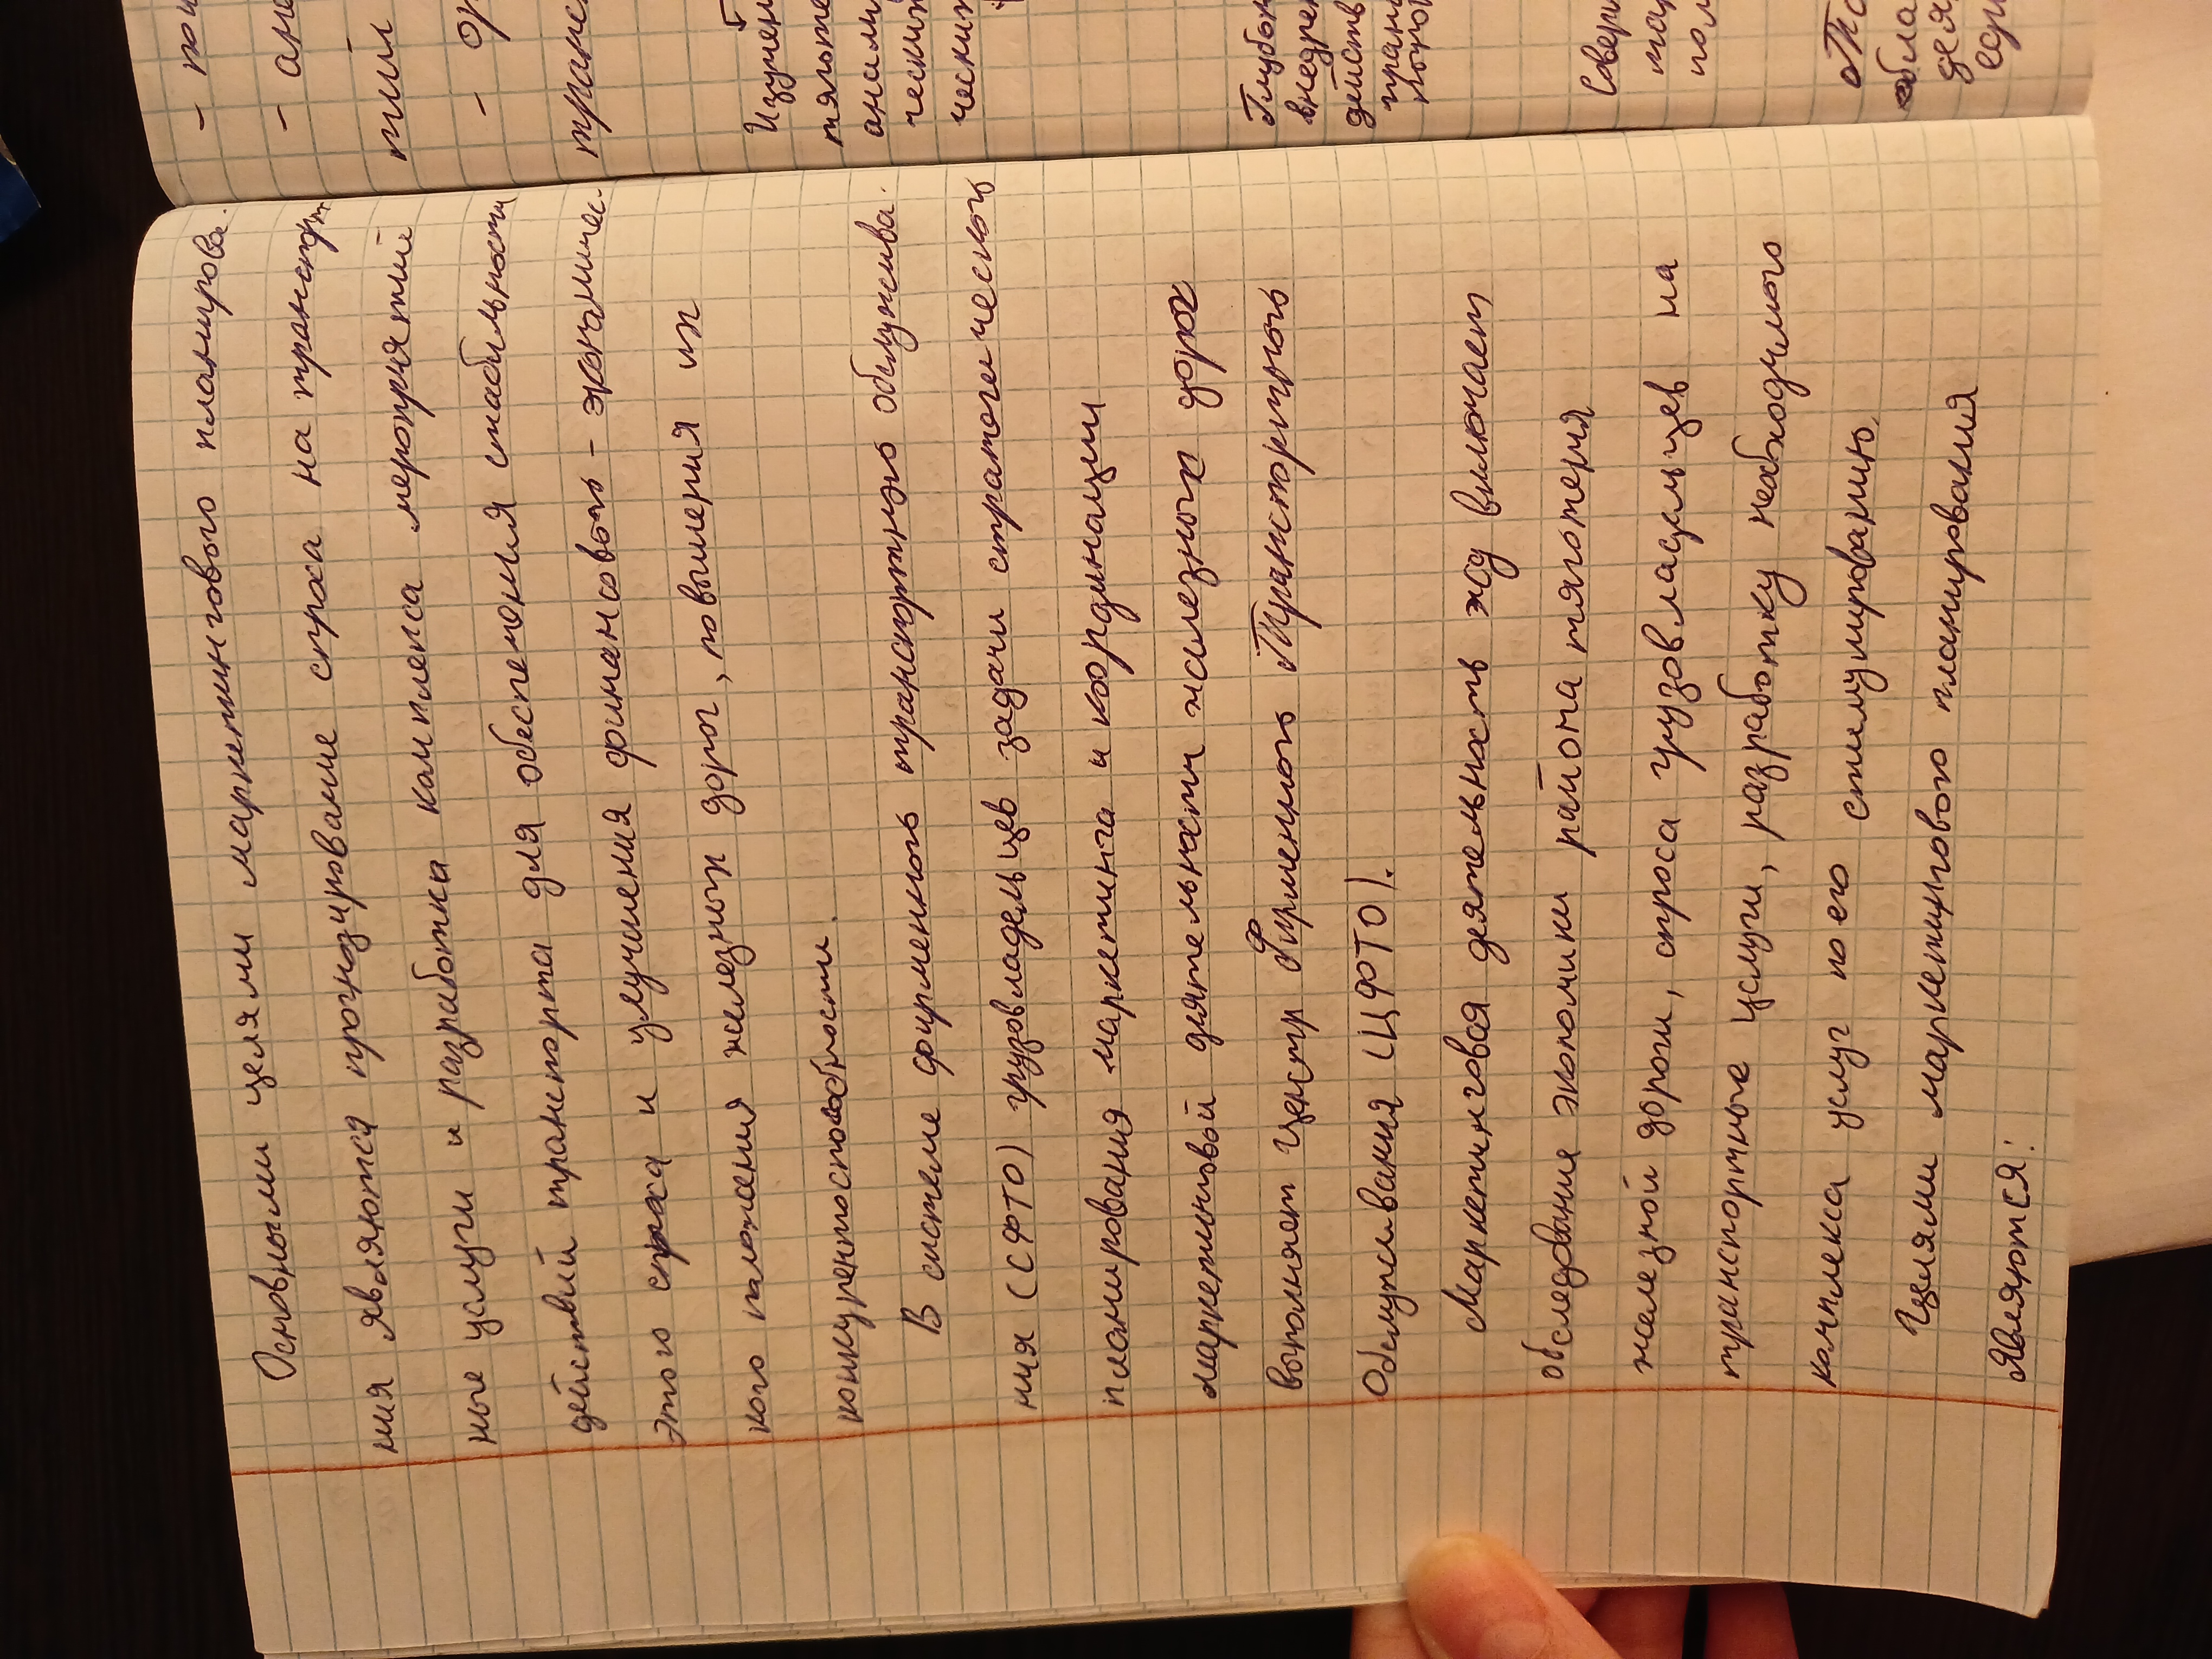 Основными целями маркетингового планирова-
ния являются прогнозирование спроса на транспорт-
ные услуги и разработка комплекса мероприятий
действий транспорта для обеспечения стабильности
этого спроса и улучшения финансово-экономичес-
кого положения железных дорог, повышения их
конкурентоспособности.
В системе фирменного транспортного обслужива-
ния (СФТО) грузовладельцев задачи стратегического
планирования маркетинга и координации
маркетинговой деятельности железных дорог
выполняет Центр Фирменного Транспортного
Обслуживания (ЦФТО).
Маркетинговая деятельность жд включает
обследование экономики района тяготения
железной дороги, спроса грузовладельцев на
транспортные услуги, разработку необходимого
комплекса услуг по его стимулированию.
Целями маркетингового планирования
являются:
- пои
- ане
тий
- ор
транс
Изучен
тяльте
анали
чески
ческих
Глубок
внедрен
действ
тран
Совер
мар
пол
обла
деян